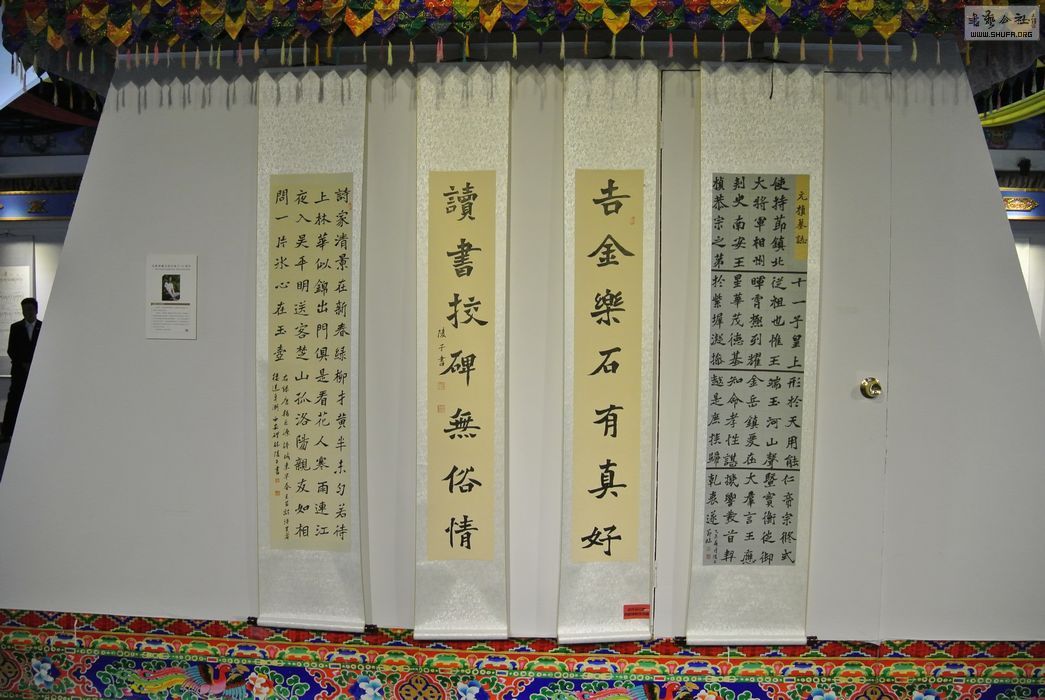 元楨墓誌
使持節鎮北
大將軍相州
刺史南安王
楨恭宗之第
十一子皇上
從祖也惟王
暉霄極列耀
星華茂德基
於紫墀凝操
形於天用能
端玉河山聲
金岳鎮爰在
知命孝性謀
越是庶族歸
仁帝宗攸式
暨實衡徙御
大羣言王應
機響發首契
乾衷遂
吉金樂石有真好
讀書挍碑無俗情
陵子書
詩家清景在新春綠柳才黃半未勻若待
上林華似錦出門俱是看花人寒雨連江
夜入吳平明送客楚山孤洛陽親友如相
問一片冰心在玉壺
書藝公社
WWW.SHUFA.ORG